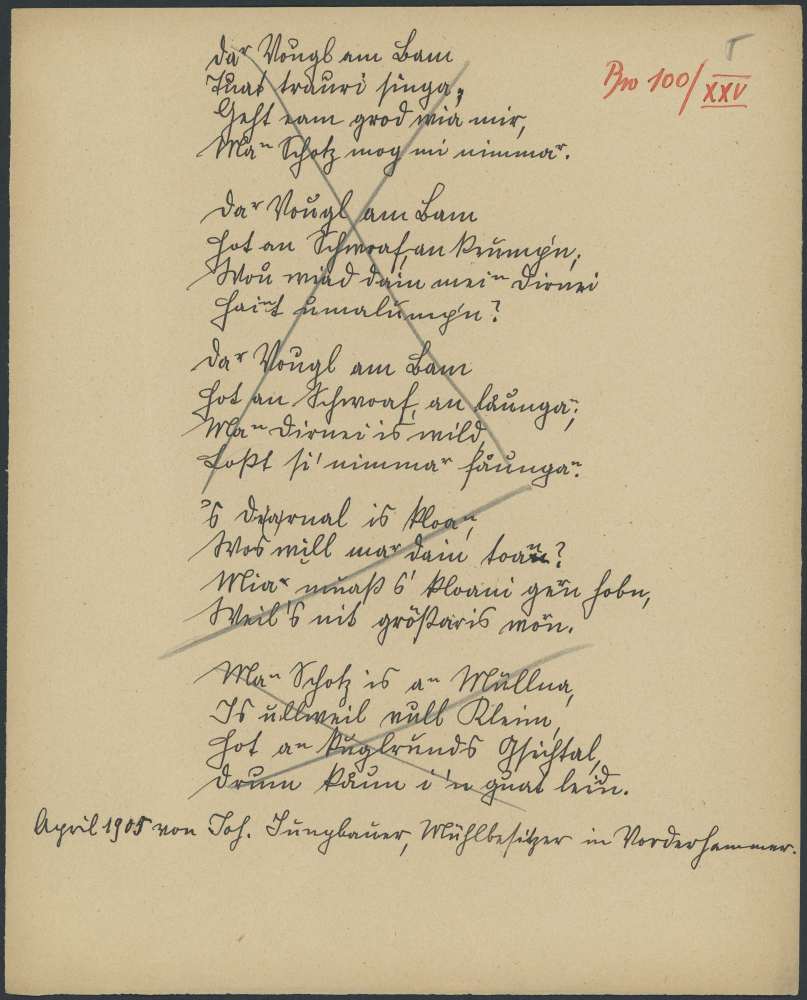 Bw 100/XXV
Daʳ Vougl am Bam
Tuat trauri singa,
Geht eam grod wia mir,
Maⁿ Schotz mog mi nimmaʳ.
Daʳ Vougl am Bam
Hot an Schwoaf, an krump'n;
Wou wiad dain meiⁿ Dirnei
Haiⁿt umalump'n?
Daʳ Vougl am Bam
Hot an Schwoaf, an laungaⁿ;
Maⁿ Dirnei is wild,
Loßt si' nimmaʳ faungaⁿ.
's Diarnal is kloaⁿ,
Wos will maʳ dain toaⁿ?
Miaʳ muaß s' kloani geʳn hobn,
Weil's nit größaris woʳn.
Maⁿ Schotz is aⁿ Müllna,
Is ullweil vull Kleim,
Hot aⁿ kuglrunds Gsichtal,
Drum kaun i 'n guat leid'n.
April 1905 von Joh. Jungbauer, Mühlbesitzer in Vorderhammer.